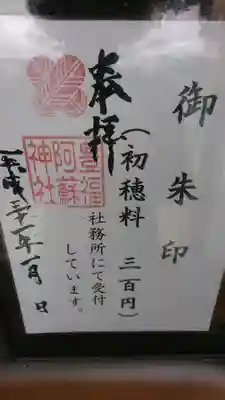 御朱印
（初穂料　三百円）
社務所にて受付
しています。
奉拝
豊福
阿蘇
神社
平成三十一年一月　日